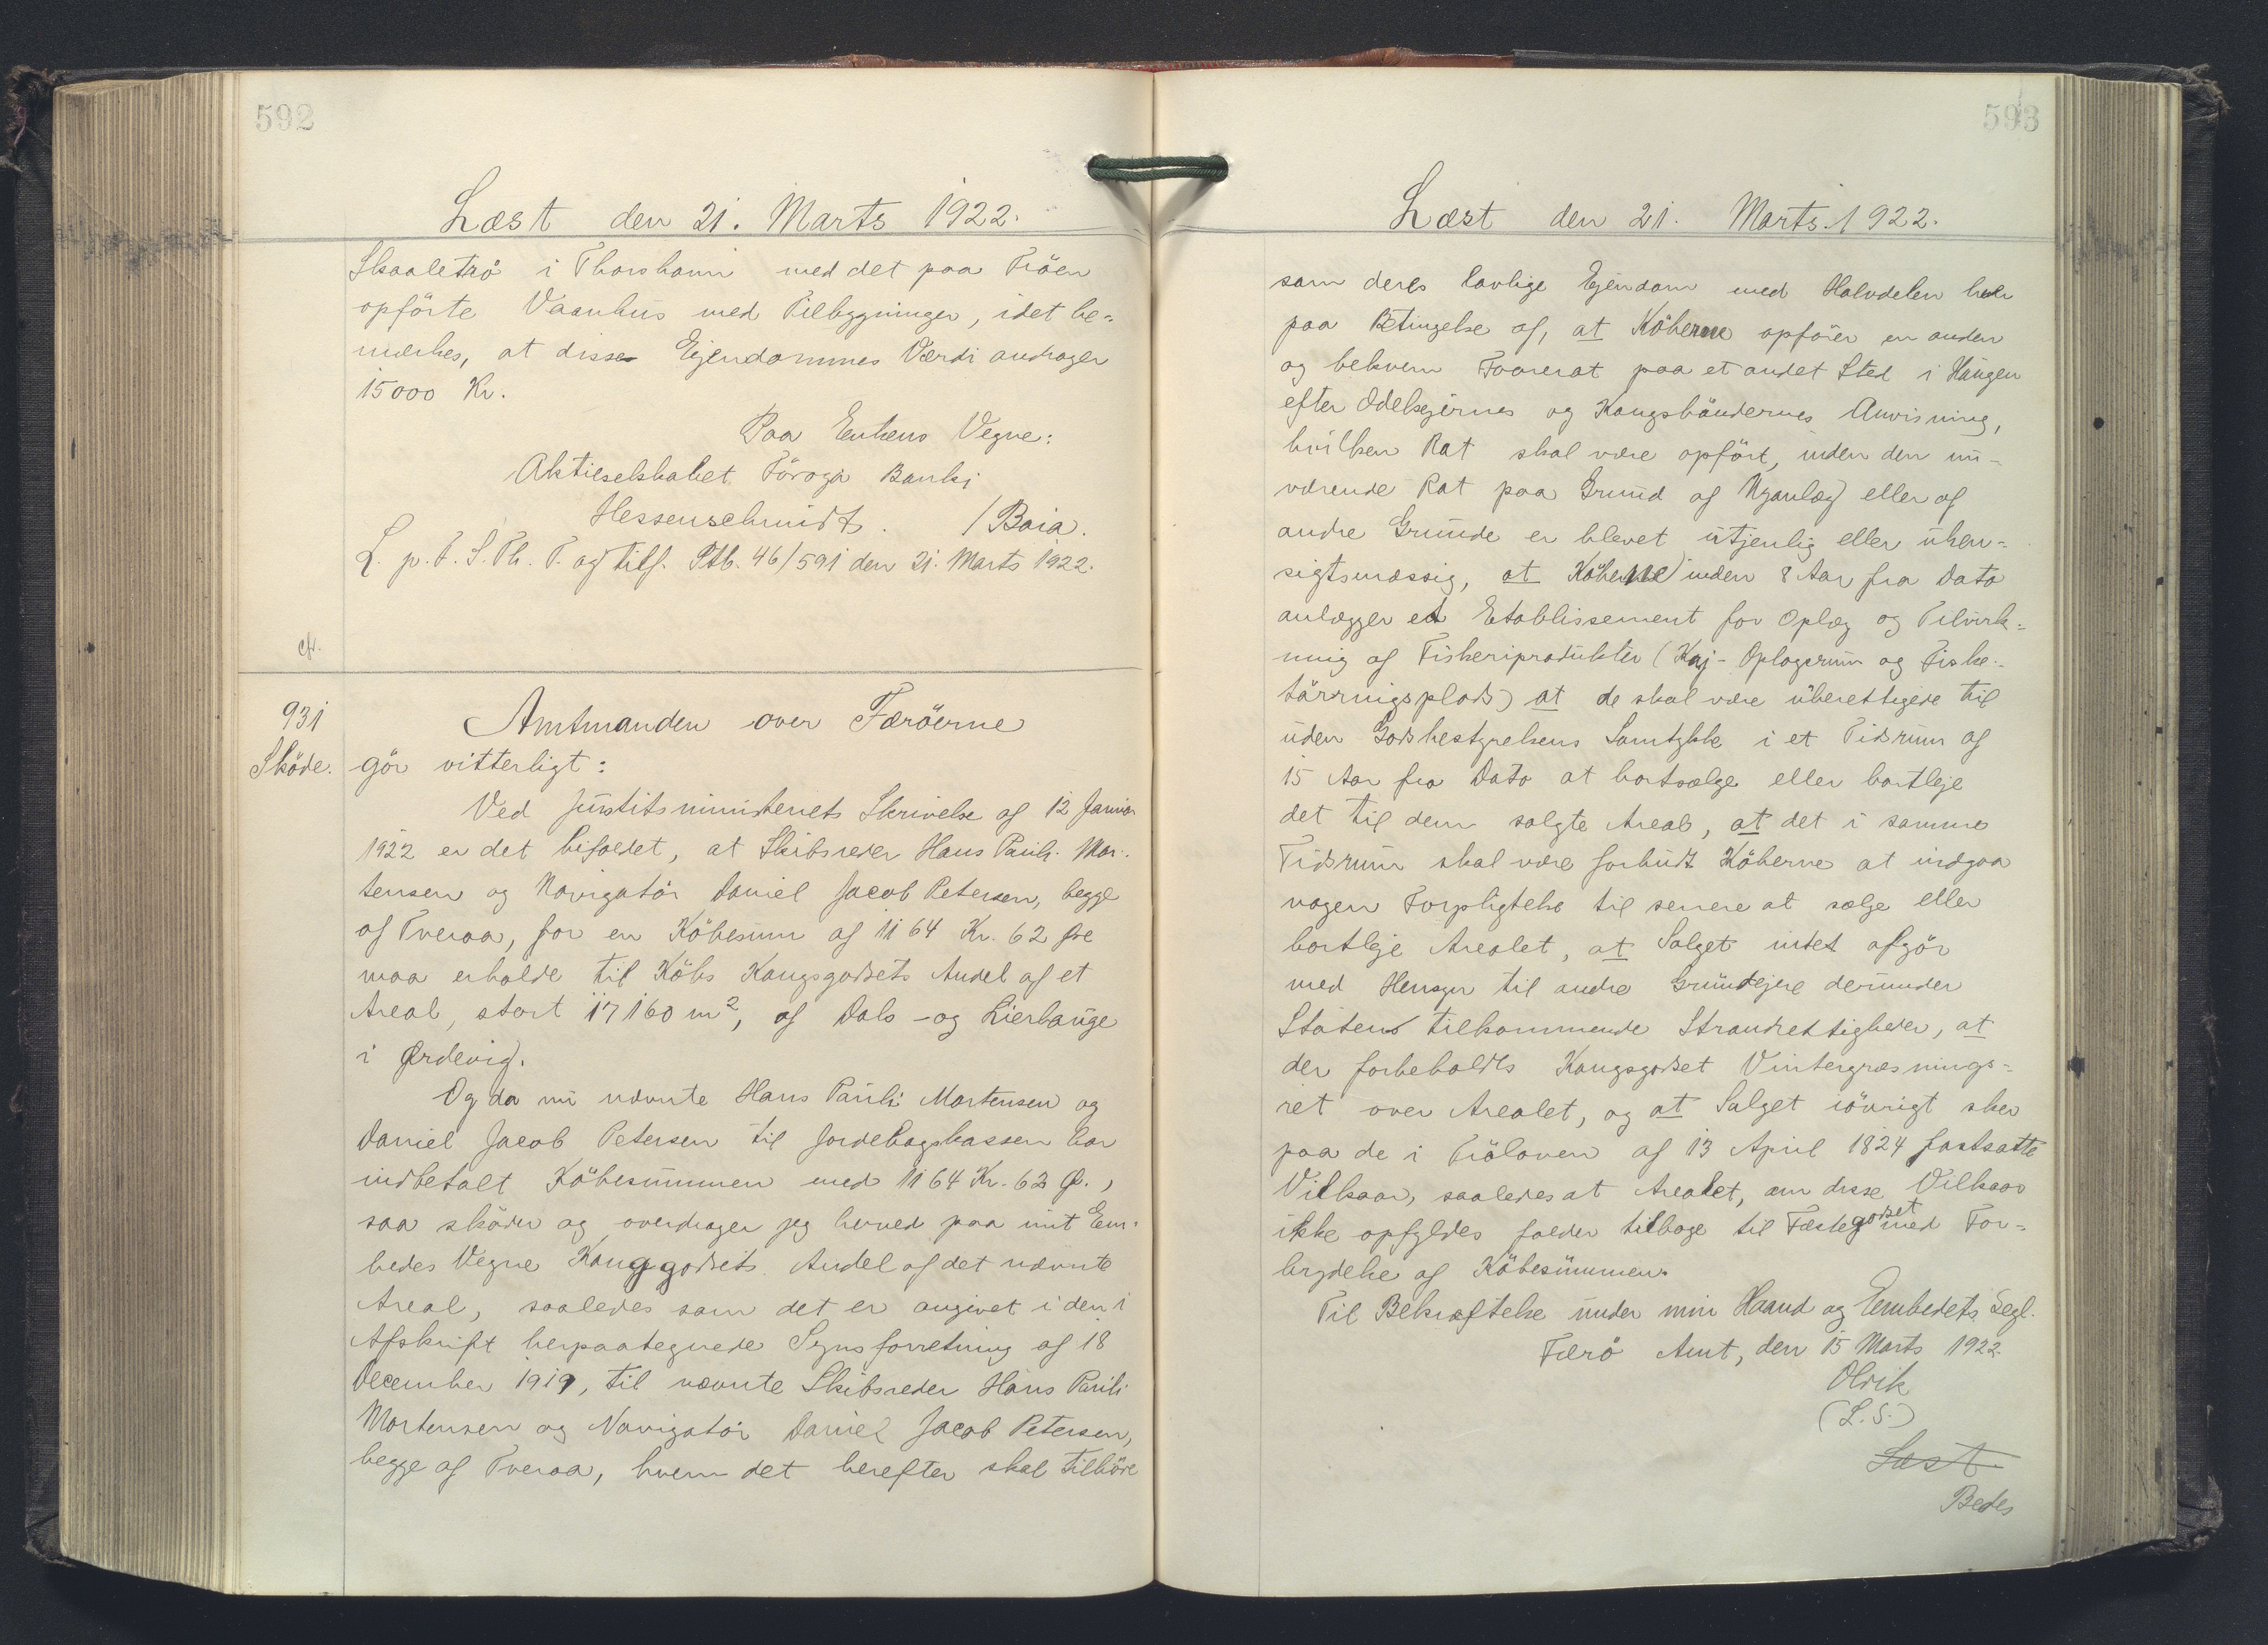 592
Læst den 21. Marts 1922.
Skaaletrö i Thorshavn med det paa Tröen
opförte Vaanhus med Tilbygninger, idet be-
mærkes, at disse Ejendommes Værdi andrager
15000 Kr.
Paa Enkens Vegne:
Aktieselskabet Föroya Banki
Hessenschmidt. / Baia.
L. p. t. S. Th. T. og tilf. Ptb. 46/591 den 21. Marts 1922.
cfr.
931
Sköde.
Amtmanden over Færöerne
gör vitterligt:
Ved Justitsministeriets Skrivelse af 12 Januar
1922 er det bifaldet, at Skibsreder Hans Pauli Mor-
tensen og Navigatör Daniel Jacob Petersen, begge
af Tveraa, for en Köbesum af 1164 Kr. 62 Øre
maa erholde til Köbs Kongsgodsets Andel af et
Areal, stort 17160 m², af Dals- og Lierhauge
i Ørdevig.
Og da nu nævnte Hans Pauli Mortensen og
Daniel Jacob Petersen til Jordebogskassen har
indbetalt Köbesummen med 1164 Kr. 62 Ø.,
saa sköder og overdrager jeg herved paa mit Em-
bedes Vegne Konggodsets Andel af det nævnte
Areal, saaledes som det er angivet i den i
Afskrift herpaategnede Synsforretning af 18
December 1919, til nævnte Skibsreder Hans Pauli
Mortensen og Navigatör Daniel Jacob Petersen,
begge af Tveraa, hvem det herefter skal tilhöre
593
Læst den 21. Marts 1922.
som deres lovlige Ejendom med Halvdelen hver
paa Betingelse af, at Köberne opförer en anden
og bekvem Faarerat paa et andet Sted i Haugen
efter Odelsejernes og Kongsböndernes Anvisning,
hvilken Rat skal være opfört, inden den nu-
værende Rat paa Grund af Nyanlæg eller af
andre Grunde er blevet utjenlig eller uhen-
sigtsmæssig, at Köberne inden 8 Aar fra Dato
anlægger et Etablissement for Oplæg og Tilvirk-
ning af Fiskeriprodukter (Kaj- Oplagsrum og Fiske-
törringsplads) at de skal være uberettigede til
uden Godsbestyrelsens Samtykke i et Tidsrum af
15 Aar fra Dato at bortsælge eller bortleje
det til dem solgte Areal, at det i samme
Tidsrum skal være forbudt Köberne at indgaa
nogen Forpligtelse til senere at sælge eller
bortleje Arealet, at Salget intet afgör
med Hensyn til andre Grundejere derunder
Staten tilkommende Strandrettigheder, at
der forbeholdes Kongsgodset Vintergræsnings-
ret over Arealet, og at Salget iövrigt sker
paa de i Tröloven af 13 April 1824 fastsatte
Vilkaar, saaledes at Arealet, om disse Vilkaar
ikke opfyldes falder tilbage til Fæstegodset med For-
brydelse af Köbesummen.
Til Bekræftelse under min Haand og Embedets Segl.
Færö Amt, den 15 Marts 1922.
Olrik
(L. S.)
Læst
Bedes